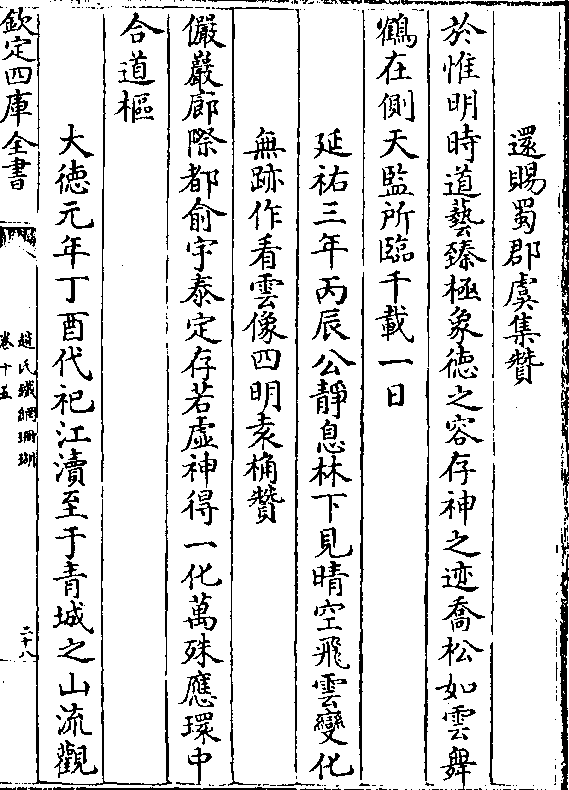 還賜蜀郡虞集贊
於惟明時道藝臻極象徳之容存神之迹喬松如雲舞
鶴在側天監所臨千載一日
延祐三年丙辰公靜息林下見晴空飛雲變化
無跡作看雲像四明袁桷贊
儼巖廊際都俞宇泰定存若虚神得一化萬殊應環中
合道樞
大徳元年丁酉代祀江瀆至于青城之山流觀
欽定四庫全書
趙氏鐵網珊瑚
卷十五
二十八